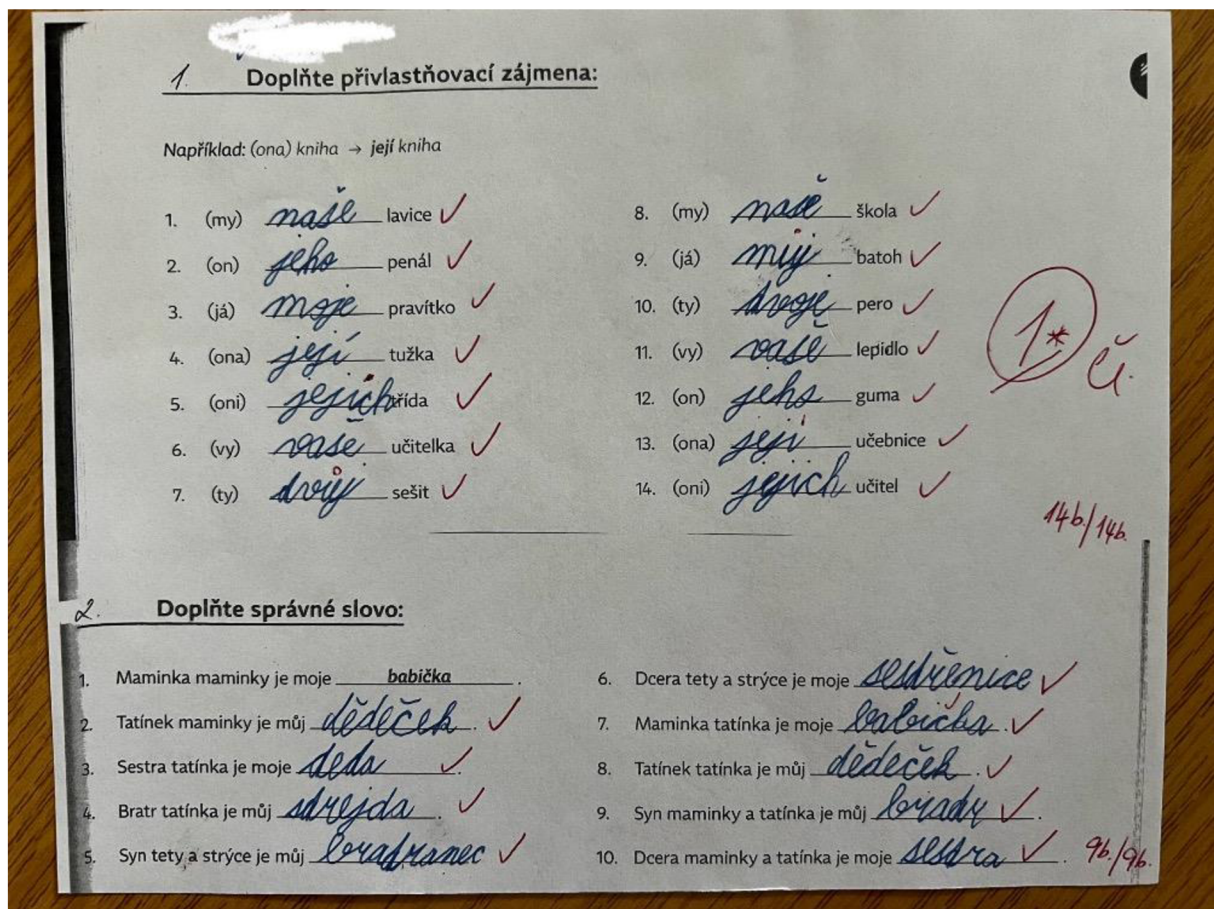 1. Doplňte přivlastňovací zájmena:
Například: (ona) kniha → její kniha
1. (my) naše lavice ✓
2. (on) jeho penál ✓
3. (já) moje pravítko ✓
4. (ona) její tužka ✓
5. (oni) jejich třída ✓
6. (vy) vaše učitelka ✓
7. (ty) tvůj sešit ✓
8. (my) naše škola ✓
9. (já) můj batoh ✓
10. (ty) tvoje pero ✓
11. (vy) vaše lepidlo ✓
12. (on) jeho guma ✓
13. (ona) její učebnice ✓
14. (oni) jejich učitel ✓
1*
Č.
14b./14b.
2. Doplňte správné slovo:
1. Maminka maminky je moje babička.
2. Tatínek maminky je můj dědeček. ✓
3. Sestra tatínka je moje teta. ✓
4. Bratr tatínka je můj strejda. ✓
5. Syn tety a strýce je můj bratranec ✓
6. Dcera tety a strýce je moje sestřenice ✓
7. Maminka tatínka je moje babička. ✓
8. Tatínek tatínka je můj dědeček. ✓
9. Syn maminky a tatínka je můj bratr ✓.
10. Dcera maminky a tatínka je moje sestra ✓.
9b./9b.